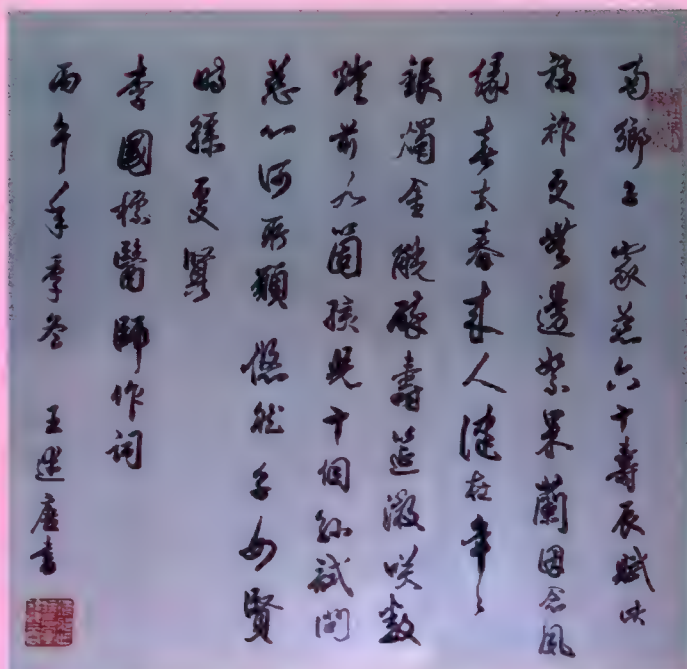 南鄉子 家慈六十壽辰賦此
福祚更無邊絮果蘭因念夙
緣春去春來人健在年々
銀燭金觥啟壽筵微咲數
燈前九箇孩兒十個孫試問
慈心何所願 悠然子女賢
時孫更賢
李國標醫師作詞
丙午年季冬 王選唐書